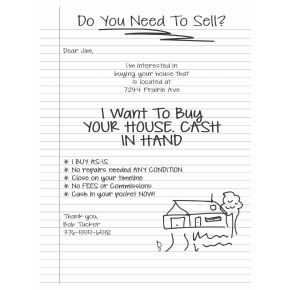 Do You Need To Sell?
Dear Jim,
I'm interested in
buying your house that
is located at
7244 Prairie Ave
I Want To Buy
YOUR HOUSE. CASH
IN HAND
* I BUY AS-IS
* No repairs needed ANY CONDITION
* Close on your timeline
* No FEES or Commissions
* Cash in your pocket NOW!
Thank you,
Bob Tucker